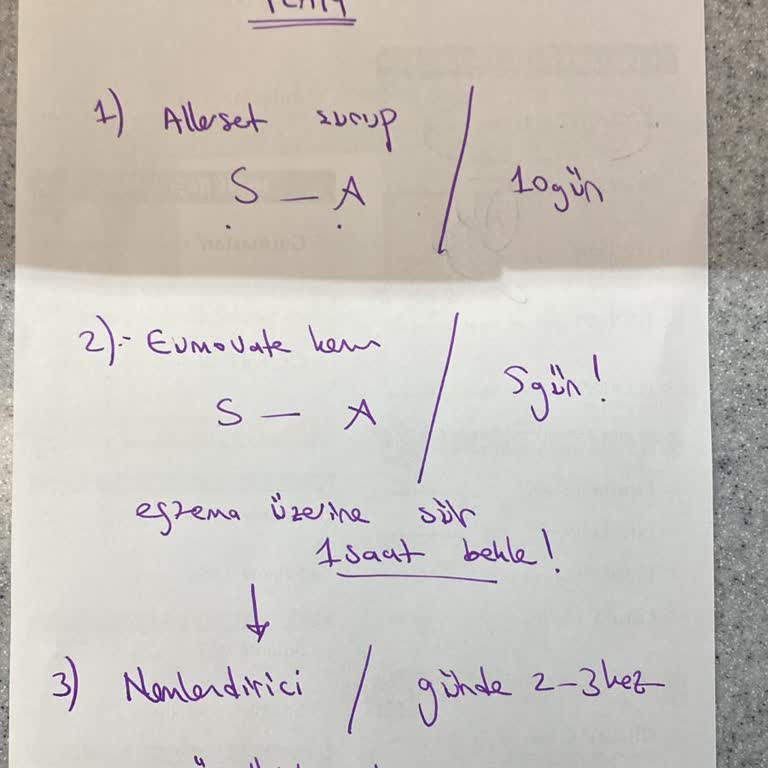 1) Allerset şurup / 10gün
S — A
2)- Eumovate krem / 5gün!
S — A
egzema üzerine sür
1 saat bekle!
↓
3) Nemlendirici / günde 2-3 kez